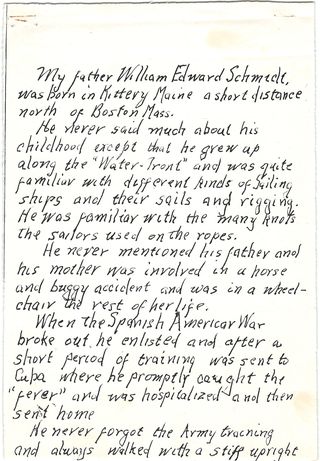 My father William Edward Schmidt,
was Born in Kittery Maine a short distance
north of Boston Mass.
He never said much about his
childhood except that he grew up
along the "Water-Front" and was quite
familiar with different kinds of Sailing
ships and their sails and rigging.
He was familiar with the many knots
the sailors used on the ropes.
He never mentioned his father and
his mother was involved in a horse
and buggy accident and was in a wheel-
chair the rest of her life.
When the Spanish American War
broke out, he enlisted and after a
short period of training was sent to
Cuba where he promptly caught the
"fever" and was hospitalized and then
sent home
He never forgot the Army training
and always walked with a stiff upright